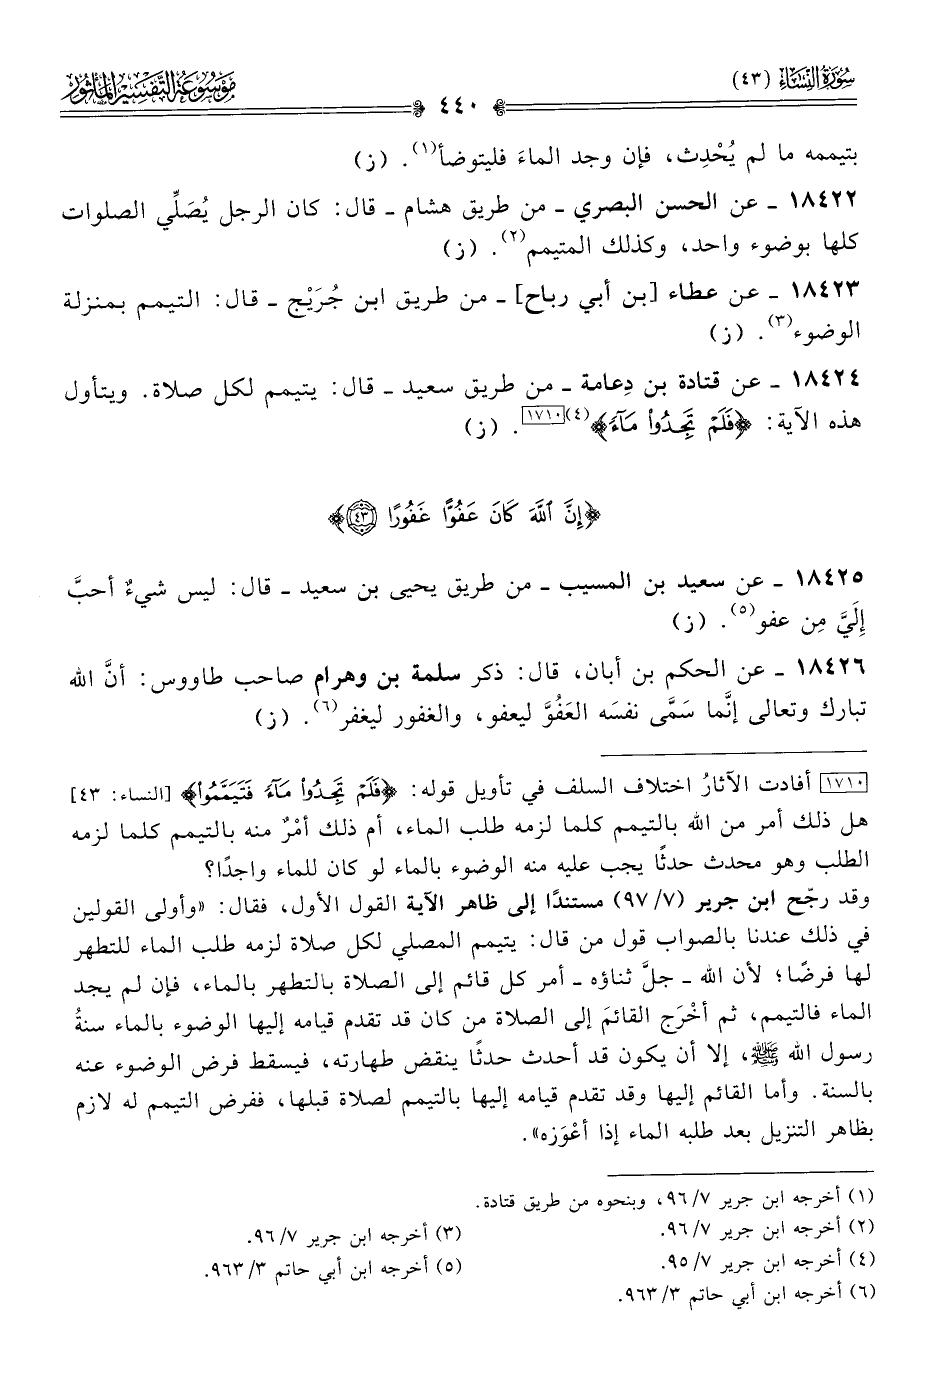 سُورَةُ النِّسَاءِ (٤٣)
٤٤٠
مَوْسُوعَةُ التَّفْسِيرِ المَأْثُورِ
بتيممه ما لم يُحْدِث، فإن وجد الماءَ فليتوضأ(١). (ز)
١٨٤٢٢ ـ عن الحسن البصري ـ من طريق هشام ـ قال: كان الرجل يُصَلِّي الصلوات
كلها بوضوء واحد، وكذلك المتيمم(٢). (ز)
١٨٤٢٣ ـ عن عطاء [بن أبي رباح] ـ من طريق ابن جُرَيْج ـ قال: التيمم بمنزلة
الوضوء(٣). (ز)
١٨٤٢٤ ـ عن قتادة بن دِعامة ـ من طريق سعيد ـ قال: يتيمم لكل صلاة. ويتأول
هذه الآية: ﴿فَلَمْ تَجِدُواْ مَآءً﴾(٤)[١٧١٠]. (ز)
﴿إِنَّ ٱللَّهَ كَانَ عَفُوًّا غَفُورًا ٤٣﴾
١٨٤٢٥ ـ عن سعيد بن المسيب ـ من طريق يحيى بن سعيد ـ قال: ليس شيءٌ أحبَّ
إِلَيَّ مِن عفو(٥). (ز)
١٨٤٢٦ ـ عن الحكم بن أبان، قال: ذكر سلمة بن وهرام صاحب طاووس: أنَّ الله
تبارك وتعالى إنَّما سَمَّى نفسَه العَفُوَّ ليعفو، والغفور ليغفر(٦). (ز)
[١٧١٠] أفادت الآثارُ اختلاف السلف في تأويل قوله: ﴿فَلَمْ تَجِدُواْ مَآءً فَتَيَمَّمُواْ﴾ [النساء: ٤٣]
هل ذلك أمر من الله بالتيمم كلما لزمه طلب الماء، أم ذلك أمْرٌ منه بالتيمم كلما لزمه
الطلب وهو محدث حدثًا يجب عليه منه الوضوء بالماء لو كان للماء واجدًا؟
وقد رجّح ابن جرير (٧/ ٩٧) مستندًا إلى ظاهر الآية القول الأول، فقال: «وأولى القولين
في ذلك عندنا بالصواب قول من قال: يتيمم المصلي لكل صلاة لزمه طلب الماء للتطهر
لها فرضًا؛ لأن الله ـ جلَّ ثناؤه ـ أمر كل قائم إلى الصلاة بالتطهر بالماء، فإن لم يجد
الماء فالتيمم، ثم أخْرَج القائمَ إلى الصلاة من كان قد تقدم قيامه إليها الوضوء بالماء سنةُ
رسول الله ﷺ، إلا أن يكون قد أحدث حدثًا ينقض طهارته، فيسقط فرض الوضوء عنه
بالسنة. وأما القائم إليها وقد تقدم قيامه إليها بالتيمم لصلاة قبلها، ففرض التيمم له لازم
بظاهر التنزيل بعد طلبه الماء إذا أعْوَزه».
(١) أخرجه ابن جرير ٧/ ٩٦، وبنحوه من طريق قتادة.
(٢) أخرجه ابن جرير ٧/ ٩٦.
(٣) أخرجه ابن جرير ٧/ ٩٦.
(٤) أخرجه ابن جرير ٧/ ٩٥.
(٥) أخرجه ابن أبي حاتم ٣/ ٩٦٣.
(٦) أخرجه ابن أبي حاتم ٣/ ٩٦٣.